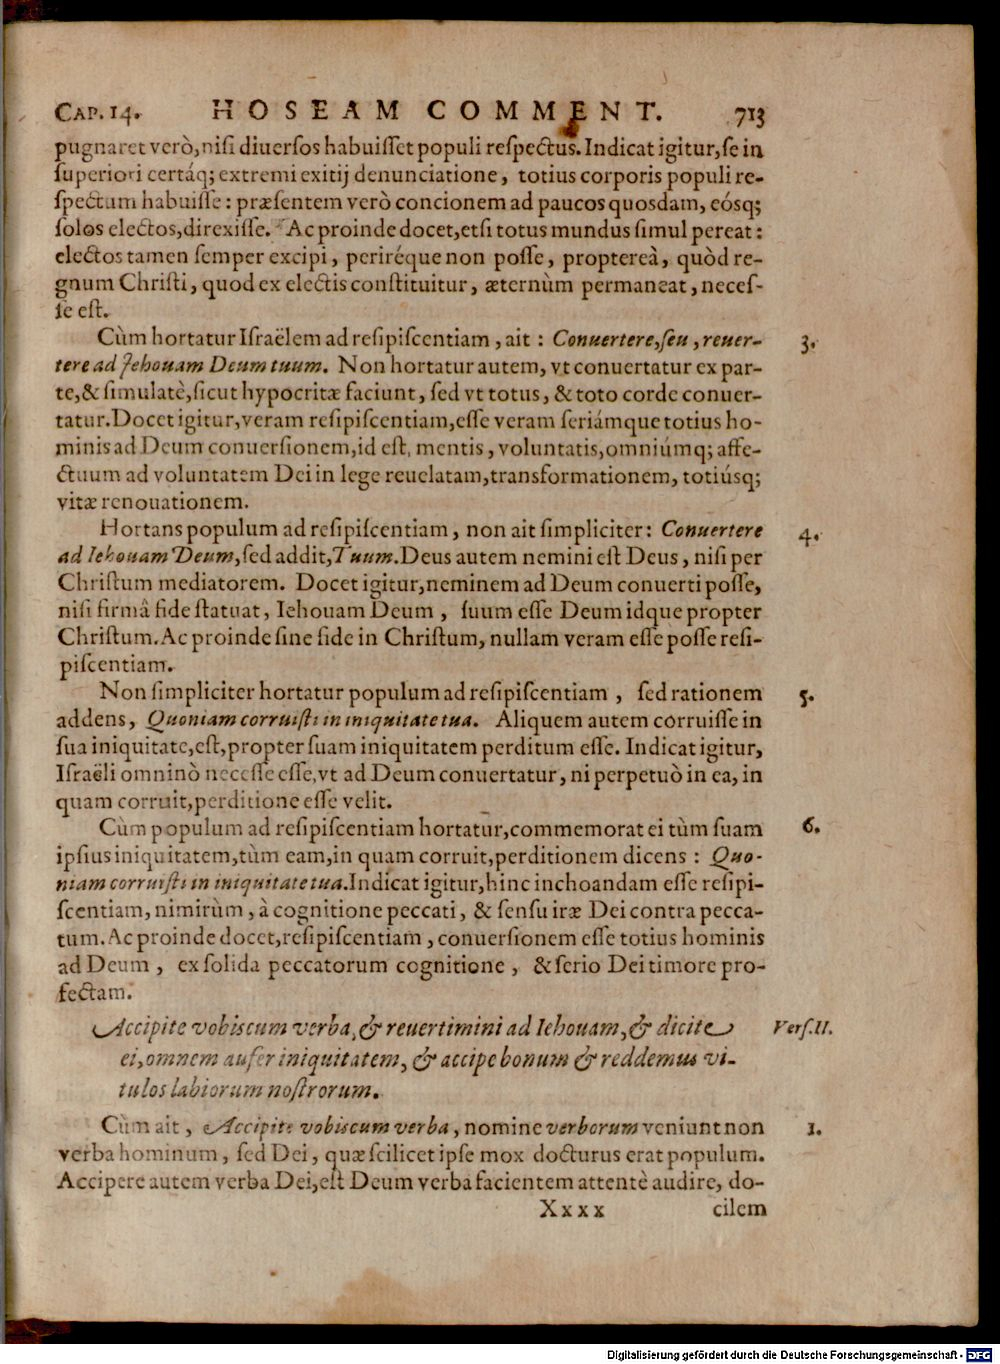 CAP. 14. HOSEAM COMMENT. 713
pugnaret verò, nisi diuersos habuisset populi respectus. Indicat igitur, se in
superiori certáq; extremi exitij denunciatione, totius corporis populi re-
spectum habuisse: præsentem verò concionem ad paucos quosdam, eósq;
solos electos, direxisse. Ac proinde docet, etsi totus mundus simul pereat:
electos tamen semper excipi, periréque non posse, proptereà, quòd re-
gnum Christi, quod ex electis constituitur, æternùm permaneat, neces-
se est.
Cùm hortatur Israëlem ad resipiscentiam, ait: Conuertere, seu, reuer-
tere ad Jehouam Deum tuum. Non hortatur autem, vt conuertatur ex par-
te, & simulatè, sicut hypocritæ faciunt, sed vt totus, & toto corde conuer-
tatur. Docet igitur, veram resipiscentiam, esse veram seriámque totius ho-
minis ad Deum conuersionem, id est, mentis, voluntatis, omniúmq; affe-
ctuum ad voluntatem Dei in lege reuelatam, transformationem, totiúsq;
vitæ renouationem.
3.
Hortans populum ad resipiscentiam, non ait simpliciter: Conuertere
ad Iehouam Deum, sed addit, Tuum. Deus autem nemini est Deus, nisi per
Christum mediatorem. Docet igitur, neminem ad Deum conuerti posse,
nisi firmâ fide statuat, Iehouam Deum, suum esse Deum idque propter
Christum. Ac proinde sine fide in Christum, nullam veram esse posse resi-
piscentiam.
4.
Non simpliciter hortatur populum ad resipiscentiam, sed rationem
addens, Quoniam corruisti in iniquitate tua. Aliquem autem corruisse in
sua iniquitate, est, propter suam iniquitatem perditum esse. Indicat igitur,
Israëli omninò necesse esse, vt ad Deum conuertatur, ni perpetuò in ea, in
quam corruit, perditione esse velit.
5.
Cùm populum ad resipiscentiam hortatur, commemorat ei tùm suam
ipsius iniquitatem, tùm eam, in quam corruit, perditionem dicens: Quo-
niam corruisti in iniquitate tua. Indicat igitur, hinc inchoandam esse resipi-
scentiam, nimirùm, à cognitione peccati, & sensu iræ Dei contra pecca-
tum. Ac proinde docet, resipiscentiam, conuersionem esse totius hominis
ad Deum, ex solida peccatorum cognitione, & serio Dei timore pro-
fectam.
6.
Accipite vobiscum verba, & reuertimini ad Iehouam, & dicite
ei, omnem aufer iniquitatem, & accipe bonum & reddemus vi-
tulos labiorum nostrorum.
Vers. II.
Cùm ait, Accipite vobiscum verba, nomine verborum veniunt non
verba hominum, sed Dei, quæ scilicet ipse mox docturus erat populum.
Accipere autem verba Dei, est Deum verba facientem attentè audire, do-
1.
Xxxx cilem
Digitalisierung gefördert durch die Deutsche Forschungsgemeinschaft - DFG